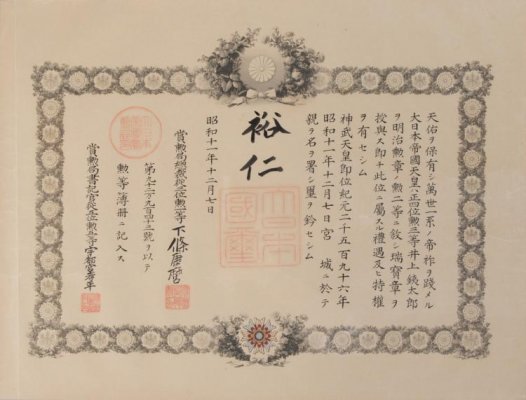 天佑ヲ保有シ萬世一系ノ帝祚ヲ踐メル
大日本帝國天皇ハ正四位勲三等井上銕太郎
ヲ明治勲章ノ勲二等ニ敘シ瑞寶章ヲ
授與ス即チ此位ニ屬スル禮遇及ヒ特權
ヲ有セシム
神武天皇即位紀元二千五百九十六年
昭和十一年十二月七日宮城ニ於テ
親ラ名ヲ署シ璽ヲ鈐セシム
裕仁
大日本國璽
昭和十一年十二月七日
賞勲局總裁從三位勲二等下條康麿
九百四十三號ヲ以テ
勲等簿冊ニ記入ス
賞勲局書記官